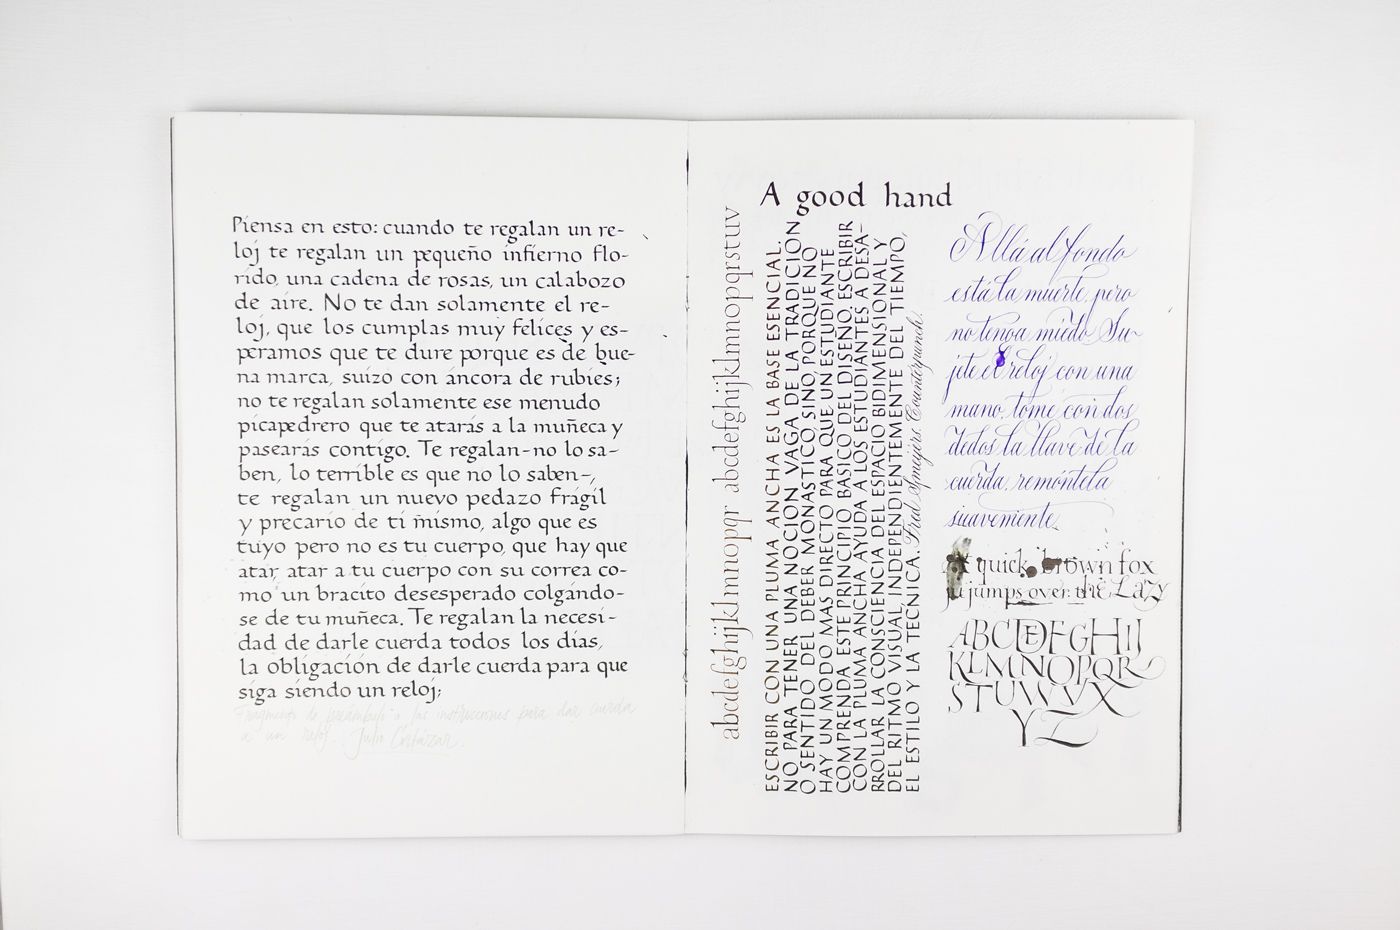 Piensa en esto: cuando te regalan un re-
loj te regalan un pequeño infierno flo-
rido, una cadena de rosas, un calabozo
de aire. No te dan solamente el re-
loj, que los cumplas muy felices y es-
peramos que te dure porque es de bue-
na marca, suizo con áncora de rubíes;
no te regalan solamente ese menudo
picapedrero que te atarás a la muñeca y
pasearás contigo. Te regalan-no lo sa-
ben, lo terrible es que no lo saben-,
te regalan un nuevo pedazo frágil
y precario de ti mismo, algo que es
tuyo pero no es tu cuerpo, que hay que
atar, atar a tu cuerpo con su correa co-
mo un bracito desesperado colgándo-
se de tu muñeca. Te regalan la necesi-
dad de darle cuerda todos los días,
la obligación de darle cuerda para que
siga siendo un reloj;
Fragmento de preámbulo a las instrucciones para dar cuerda
a un reloj. Julio Cortázar.
A good hand
abcdefghijklmnopqr abcdefghijklmnopqrstuv
ESCRIBIR CON UNA PLUMA ANCHA ES LA BASE ESENCIAL.
NO PARA TENER UNA NOCION VAGA DE LA TRADICION
O SENTIDO DEL DEBER MONASTICO, SINO, PORQUE NO
HAY UN MODO MAS DIRECTO PARA QUE UN ESTUDIANTE
COMPRENDA ESTE PRINCIPIO BASICO DEL DISEÑO. ESCRIBIR
CON LA PLUMA ANCHA AYUDA A LOS ESTUDIANTES A DESA-
RROLLAR LA CONSCIENCIA DEL ESPACIO BIDIMENSIONAL Y
DEL RITMO VISUAL, INDEPENDIENTEMENTE DEL TIEMPO,
EL ESTILO Y LA TECNICA. Fred Smeijers. Counterpunch.
Allá al fondo
está la muerte, pero
no tenga miedo. Su-
jete el reloj con una
mano, tome con dos
dedos la llave de la
cuerda, remóntela
suavemente.
quick brown fox
jumps over the Lazy
ABCDEFGHIJ
KLMNOPQR
STUWVX
YZ